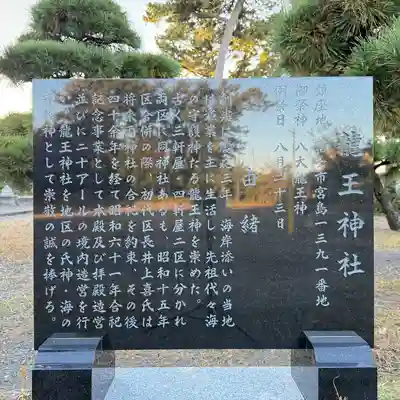 龍王神社
鎮座地 市宮島一三九一番地
御祭神 八大龍王神
例祭日 八月二十三日
由緒
三年、海岸添いの当地
は漁業を主に生活し、先祖代々海
の守護神たる龍王神を崇めた。
古く三軒屋・四軒屋二区に分かれ
両区に同神社あるも、昭和十五年
区合併の際、初代区長井上喜氏は
将来両神社の合祀を約束、その後
四十余年を経て昭和六十一年合祀
記念事業として本殿及び拝殿造営
並びに二十アールの境内造営を行
い、龍王神社を地区の氏神・海の
守護神として崇敬の誠を捧げる。